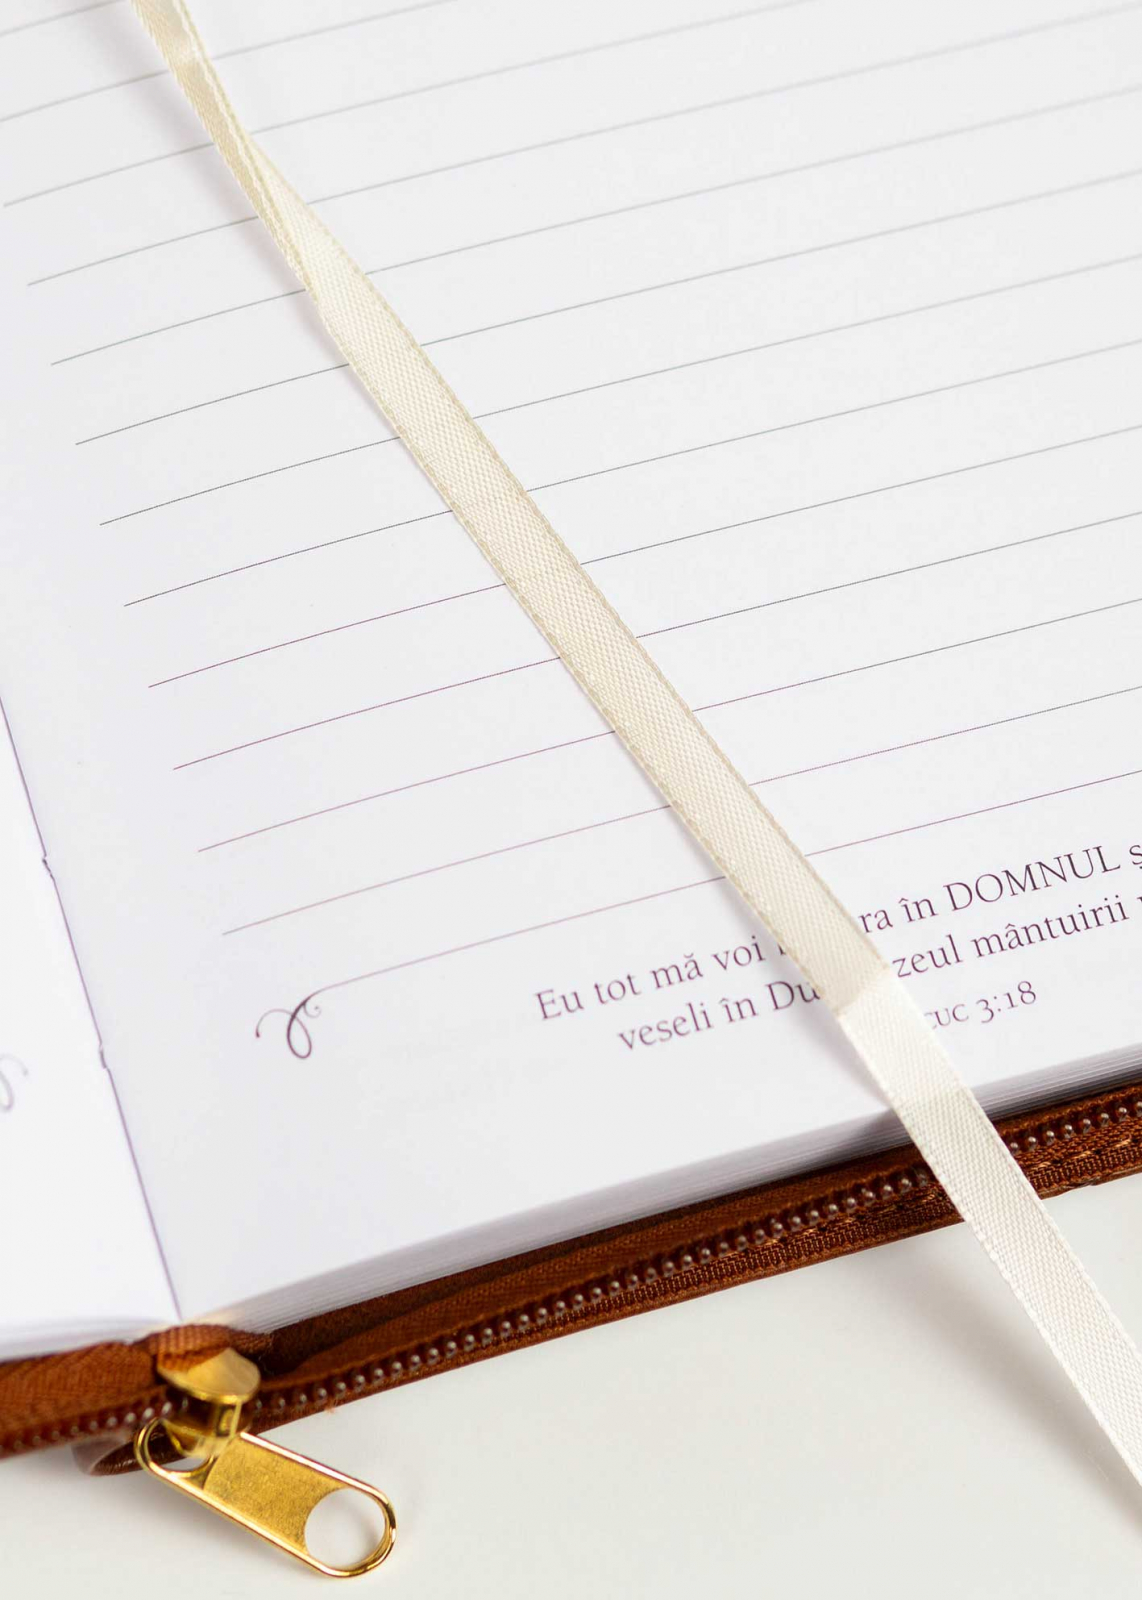 Eu tot mă voi ra în DOMNUL
veseli în Du zeul mântuirii
cuc 3:18